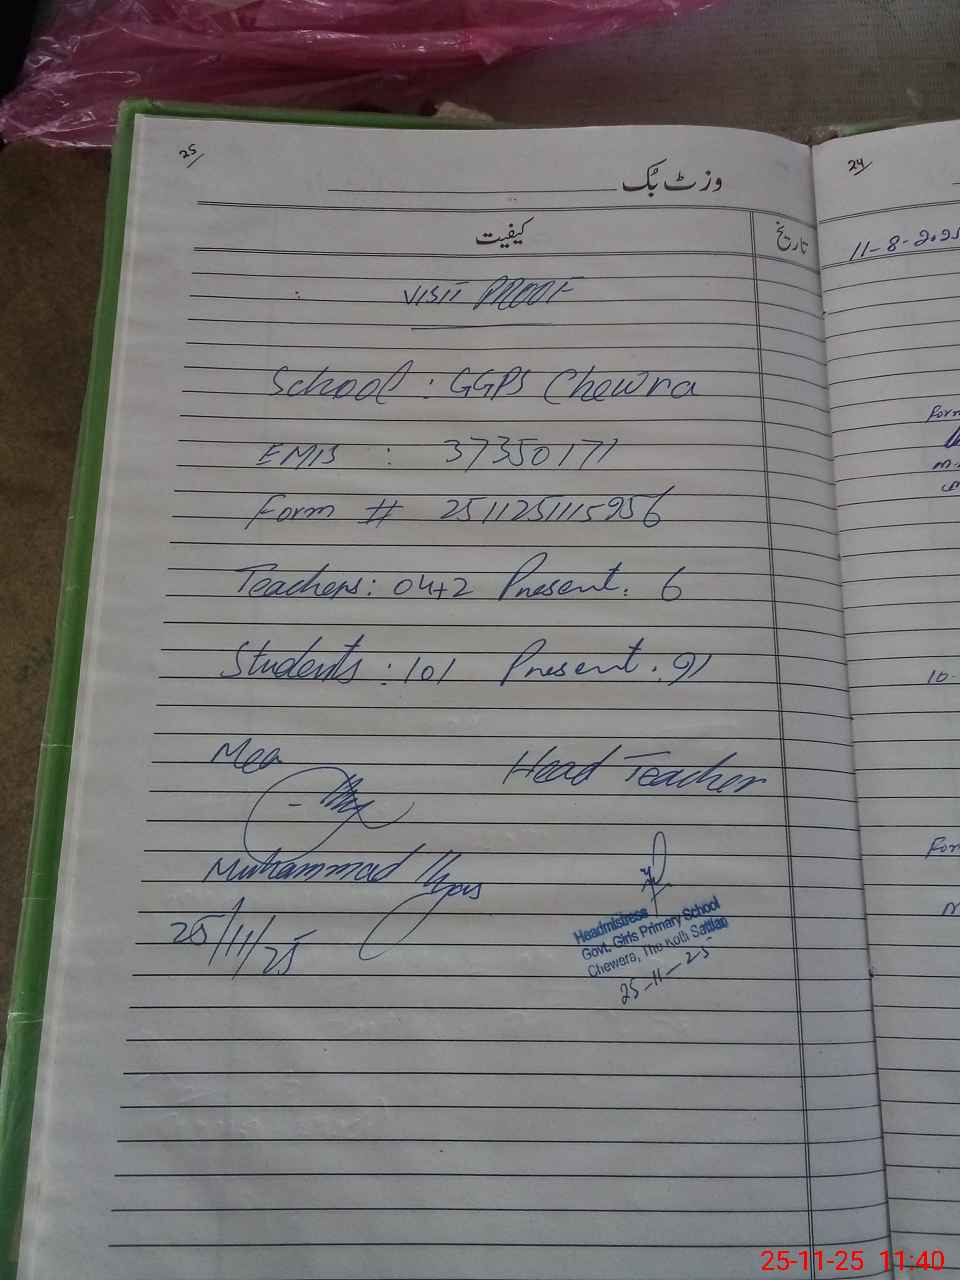 25/
وزٹ بُک
کیفیت
تاریخ
VISIT PROOF
School : GGPS Chewra
EMIS : 37350171
Form # 2511251115956
Teachers: 04+2 Present: 6
Students: 101 Present: 91
Mea
Head Teacher
Muhammad Ilyas
25/11/25
Headmistress
Govt. Girls Primary School
Chewera, The Kotli Sattian
25-11-25
24/
11-8-2025
Form
10-
For
25-11-25 11:40